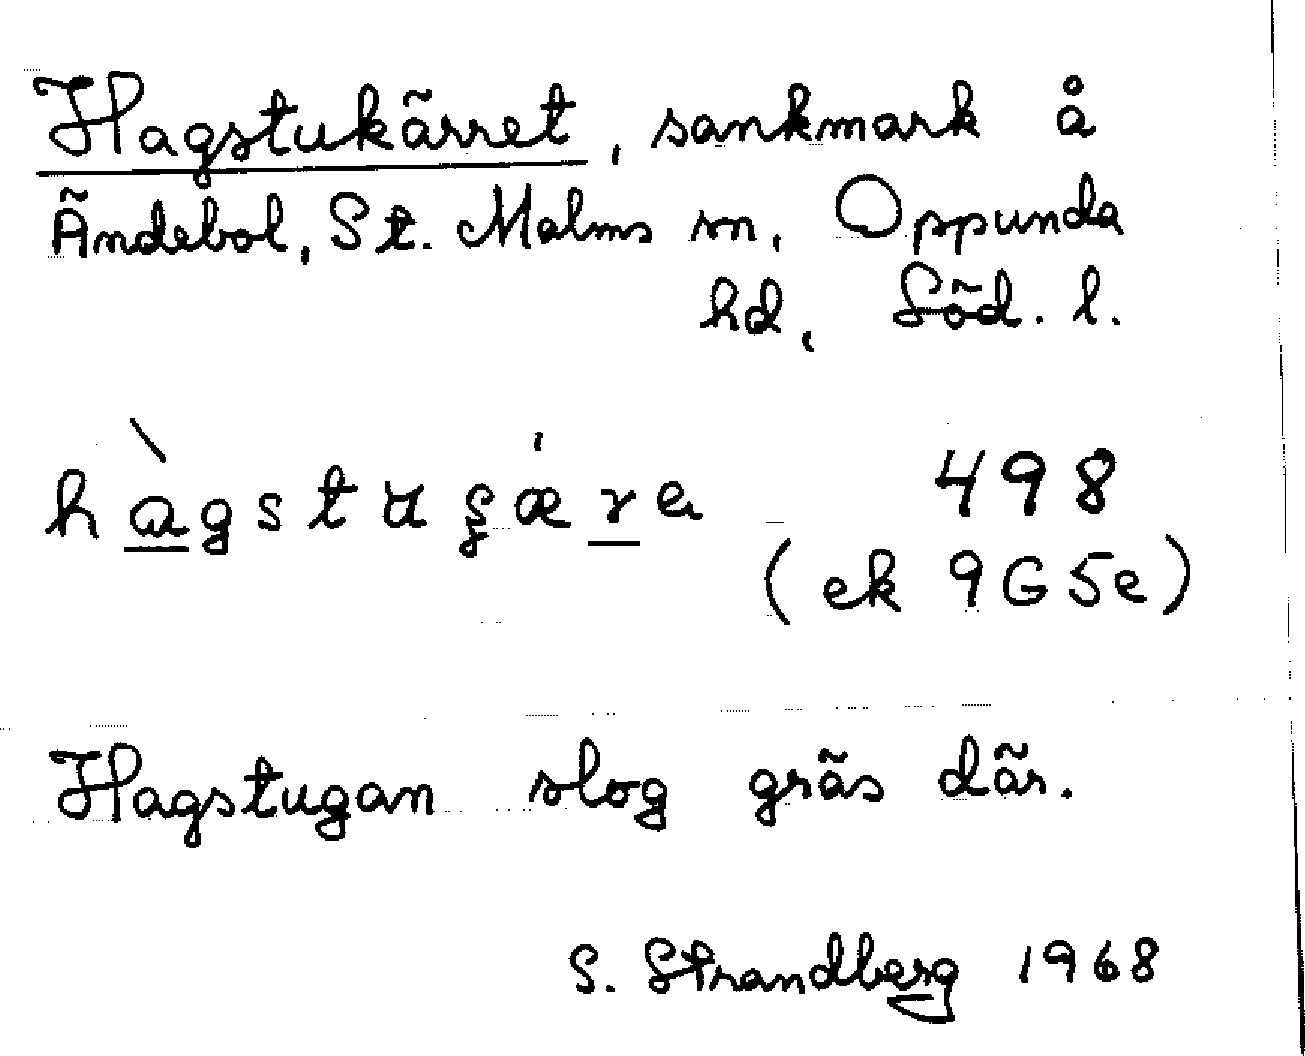 Hagstukärret, sankmark å
Ändebol, St. Malms sn, Oppunda
hd, Söd. l.
498
(ek 9G5e)
Hagstugan slog gräs där.
S. Strandberg 1968